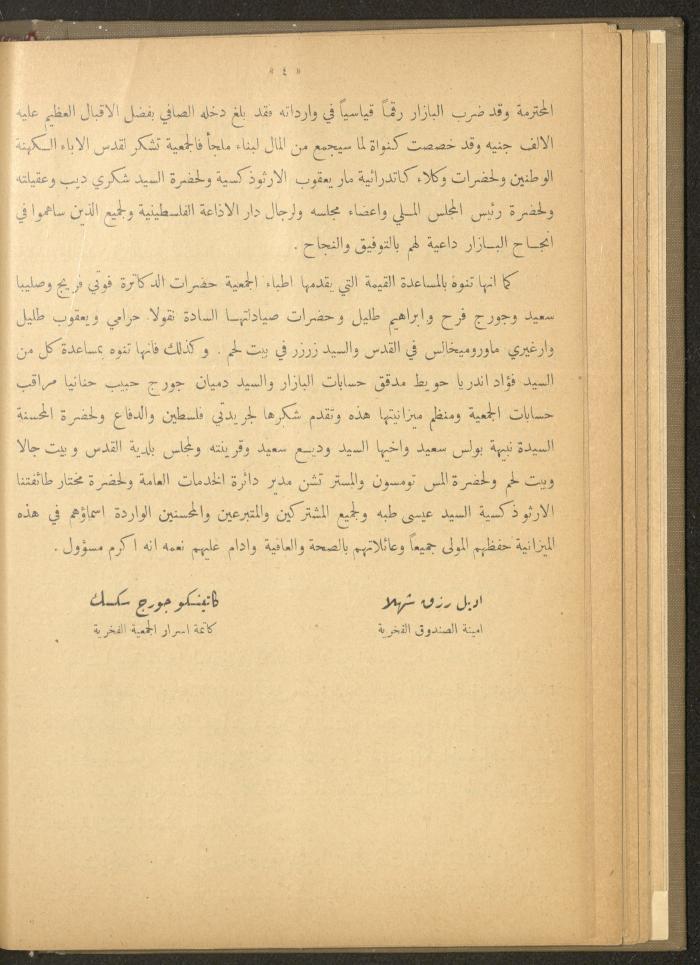 « ٤ »
المحترمة وقد ضرب البازار رقماً قياسياً في وارداته فقد بلغ دخله الصافي بفضل الاقبال العظيم عليه
الالف جنيه وقد خصصت كنواة لما سيجمع من المال لبناء ملجأ فالجمعية تشكر لقدس الاباء الكهنة
الوطنين ولحضرات وكلاء كاتدرائية مار يعقوب الارثوذكسية ولحضرة السيد شكري ديب وعقيلته
ولحضرة رئيس المجلس الملي واعضاء مجلسه ولرجال دار الاذاعة الفلسطينية ولجميع الذين ساهموا في
انجاح البازار داعية لهم بالتوفيق والنجاح .
كما انها تنوه بالمساعدة القيمة التي يقدمها اطباء الجمعية حضرات الدكاترة فوتي فريج وصليبا
سعيد وجورج فرح وابراهيم طليل وحضرات صيادلتها السادة نقولا حرامي ويعقوب طليل
وارغيري ماوروميخالس في القدس والسيد زرزر في بيت لحم . وكذلك فانها تنوه بمساعدة كل من
السيد فؤاد اندريا حويط مدقق حسابات البازار والسيد دميان جورج حبيب حنانيا مراقب
حسابات الجمعية ومنظم ميزانيتها هذه وتقدم شكرها لجريدتي فلسطين والدفاع ولحضرة المحسنة
السيدة نبيهة بولس سعيد واخيها السيد وديع سعيد وقرينته ولمجلس بلدية القدس وبيت جالا
وبيت لحم ولحضرة المس تومسون والمستر تشن مدير دائرة الخدمات العامة ولحضرة مختار طائفتنا
الارثوذكسية السيد عيسى طبه ولجميع المشتركين والمتبرعين والمحسنين الواردة اسماؤهم في هذه
الميزانية حفظهم المولى جميعاً وعائلاتهم بالصحة والعافية وادام عليهم نعمه انه اكرم مسؤول .
اديل رزق شهلا
امينة الصندوق الفخرية
جورج سكسك
كاتمة اسرار الجمعية الفخرية